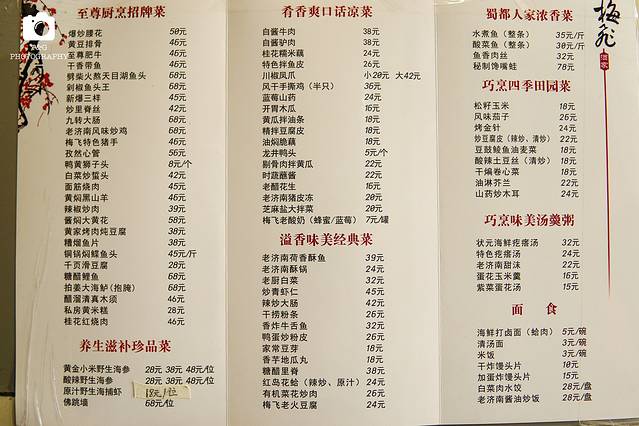 P&G
PHOTOGRAPHY
至尊厨烹招牌菜
爆炒腰花 50元
黄豆排骨 46元
至尊肥牛 46元
干香带鱼 46元
劈柴火熬天目湖鱼头 68元
剁椒鱼头王 68元
新爆三样 45元
炒里脊丝 42元
九转大肠 68元
老济南风味炒鸡 68元
梅飞特色猪手 46元
孜然心管 56元
鸭黄狮子头 8元/个
白菜炒蜇头 42元
面筋烧肉 45元
黄焖黑山羊 46元
辣椒炒肉 39元
酱焖大黄花 58元
黄家烤肉炖豆腐 38元
糟熘鱼片 38元
铜锅焖鲽鱼头 45元/斤
千页滑豆腐 28元
糖醋鲤鱼 68元
拍姜大海鲈(抱腌) 68元
醋溜清真木须 46元
私房黄米糕 28元
桂花红烧肉 46元
养生滋补珍品菜
黄金小米野生海参 28元 38元 48元/位
酸辣野生海参 28元 38元 48元/位
原汁野生海捕虾 18元/位
佛跳墙 68元/位
肴香爽口话凉菜
自酱牛肉 38元
自酱驴肉 38元
桂花糯米藕 24元
特色拌鱼皮 26元
川椒凤爪 小20元 大42元
风干手撕鸡(半只) 36元
蓝莓山药 24元
开胃木瓜 16元
黄瓜拌油条 18元
精拌豆腐皮 18元
油焖脆藕 18元
龙井鸭头 5元/个
剔骨肉拌黄瓜 22元
时蔬蘸酱 22元
老醋花生 16元
老济南猪皮冻 20元
芝麻盐大拌菜 20元
梅飞老酸奶(蜂蜜/蓝莓) 7元/罐
溢香味美经典菜
老济南荷香酥鱼 39元
老济南酥锅 24元
老厨白菜 32元
炒青虾仁 45元
辣炒大肠 42元
干捞粉条 26元
香炸牛舌鱼 32元
鸭蛋炒粉皮 26元
家常豆芽 18元
香芋地瓜丸 18元
糖醋里脊 38元
红岛花蛤(辣炒、原汁) 24元
有机菜花炒肉 26元
梅飞老火豆腐 24元
梅飞
酒家
蜀都人家浓香菜
水煮鱼(整条) 35元/斤
酸菜鱼(整条) 30元/斤
鱼香肉丝 32元
秘制馋嘴蛙 78元
巧烹四季田园菜
松籽玉米 18元
风味茄子 26元
烤金针 24元
炒豆腐皮(辣炒、清炒) 22元
豆豉鲮鱼油麦菜 18元
酸辣土豆丝(清炒) 22元
干煸卷心菜 18元
油淋芥兰 22元
山药炒木耳 24元
巧烹味美汤羹粥
状元海鲜疙瘩汤 32元
特色疙瘩汤 24元
老济南甜沫 22元
蛋花玉米羹 16元
紫菜蛋花汤 15元
面 食
海鲜打卤面(蛤肉) 5元/碗
清汤面 3元/碗
米饭 3元/碗
干炸馒头片 10元
加蛋炸馒头片 15元
白菜肉水饺 28元/盘
老济南酱油炒饭 28元/盘